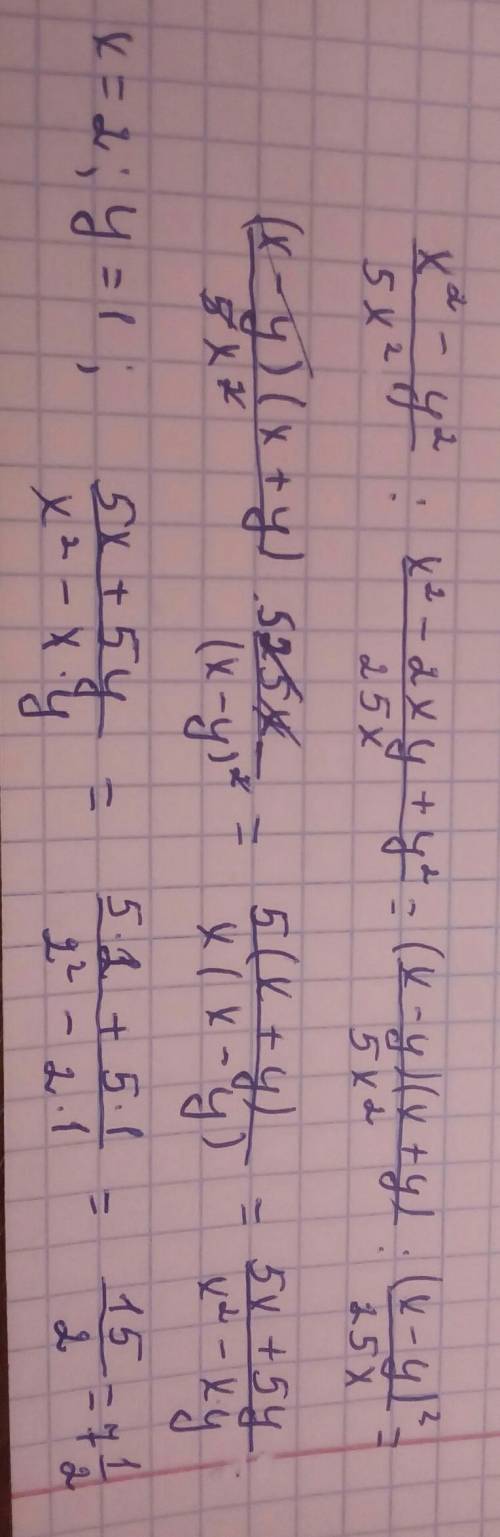 (x² - y²)/(5x²) : (x² - 2xy + y²)/(25x) = ((x - y)(x + y))/(5x²) : (x - y)²/(25x) =
((x - y)(x + y))/(5x²) · 5 25x/(x - y)² = 5(x + y)/(x(x - y)) = (5x + 5y)/(x² - xy) .
x = 2; y = 1; (5x + 5y)/(x² - x·y) = (5·2 + 5·1)/(2² - 2·1) = 15/2 = 7 1/2